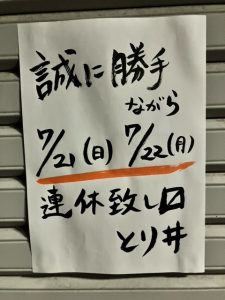 誠に勝手
ながら
7/21(日) 7/22(月)
連休致し口
とり井